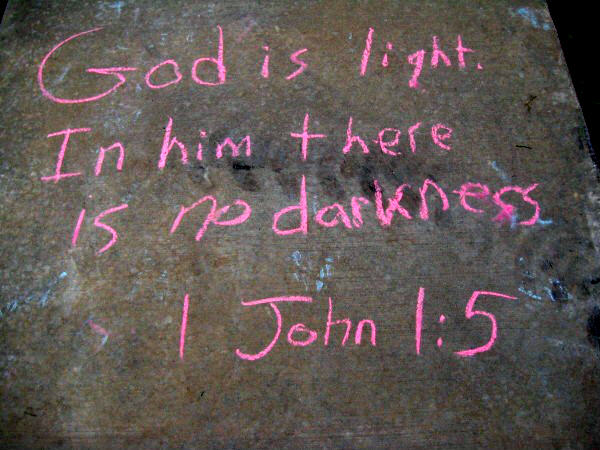 God is light.
In him there
is no darkness
1 John 1:5